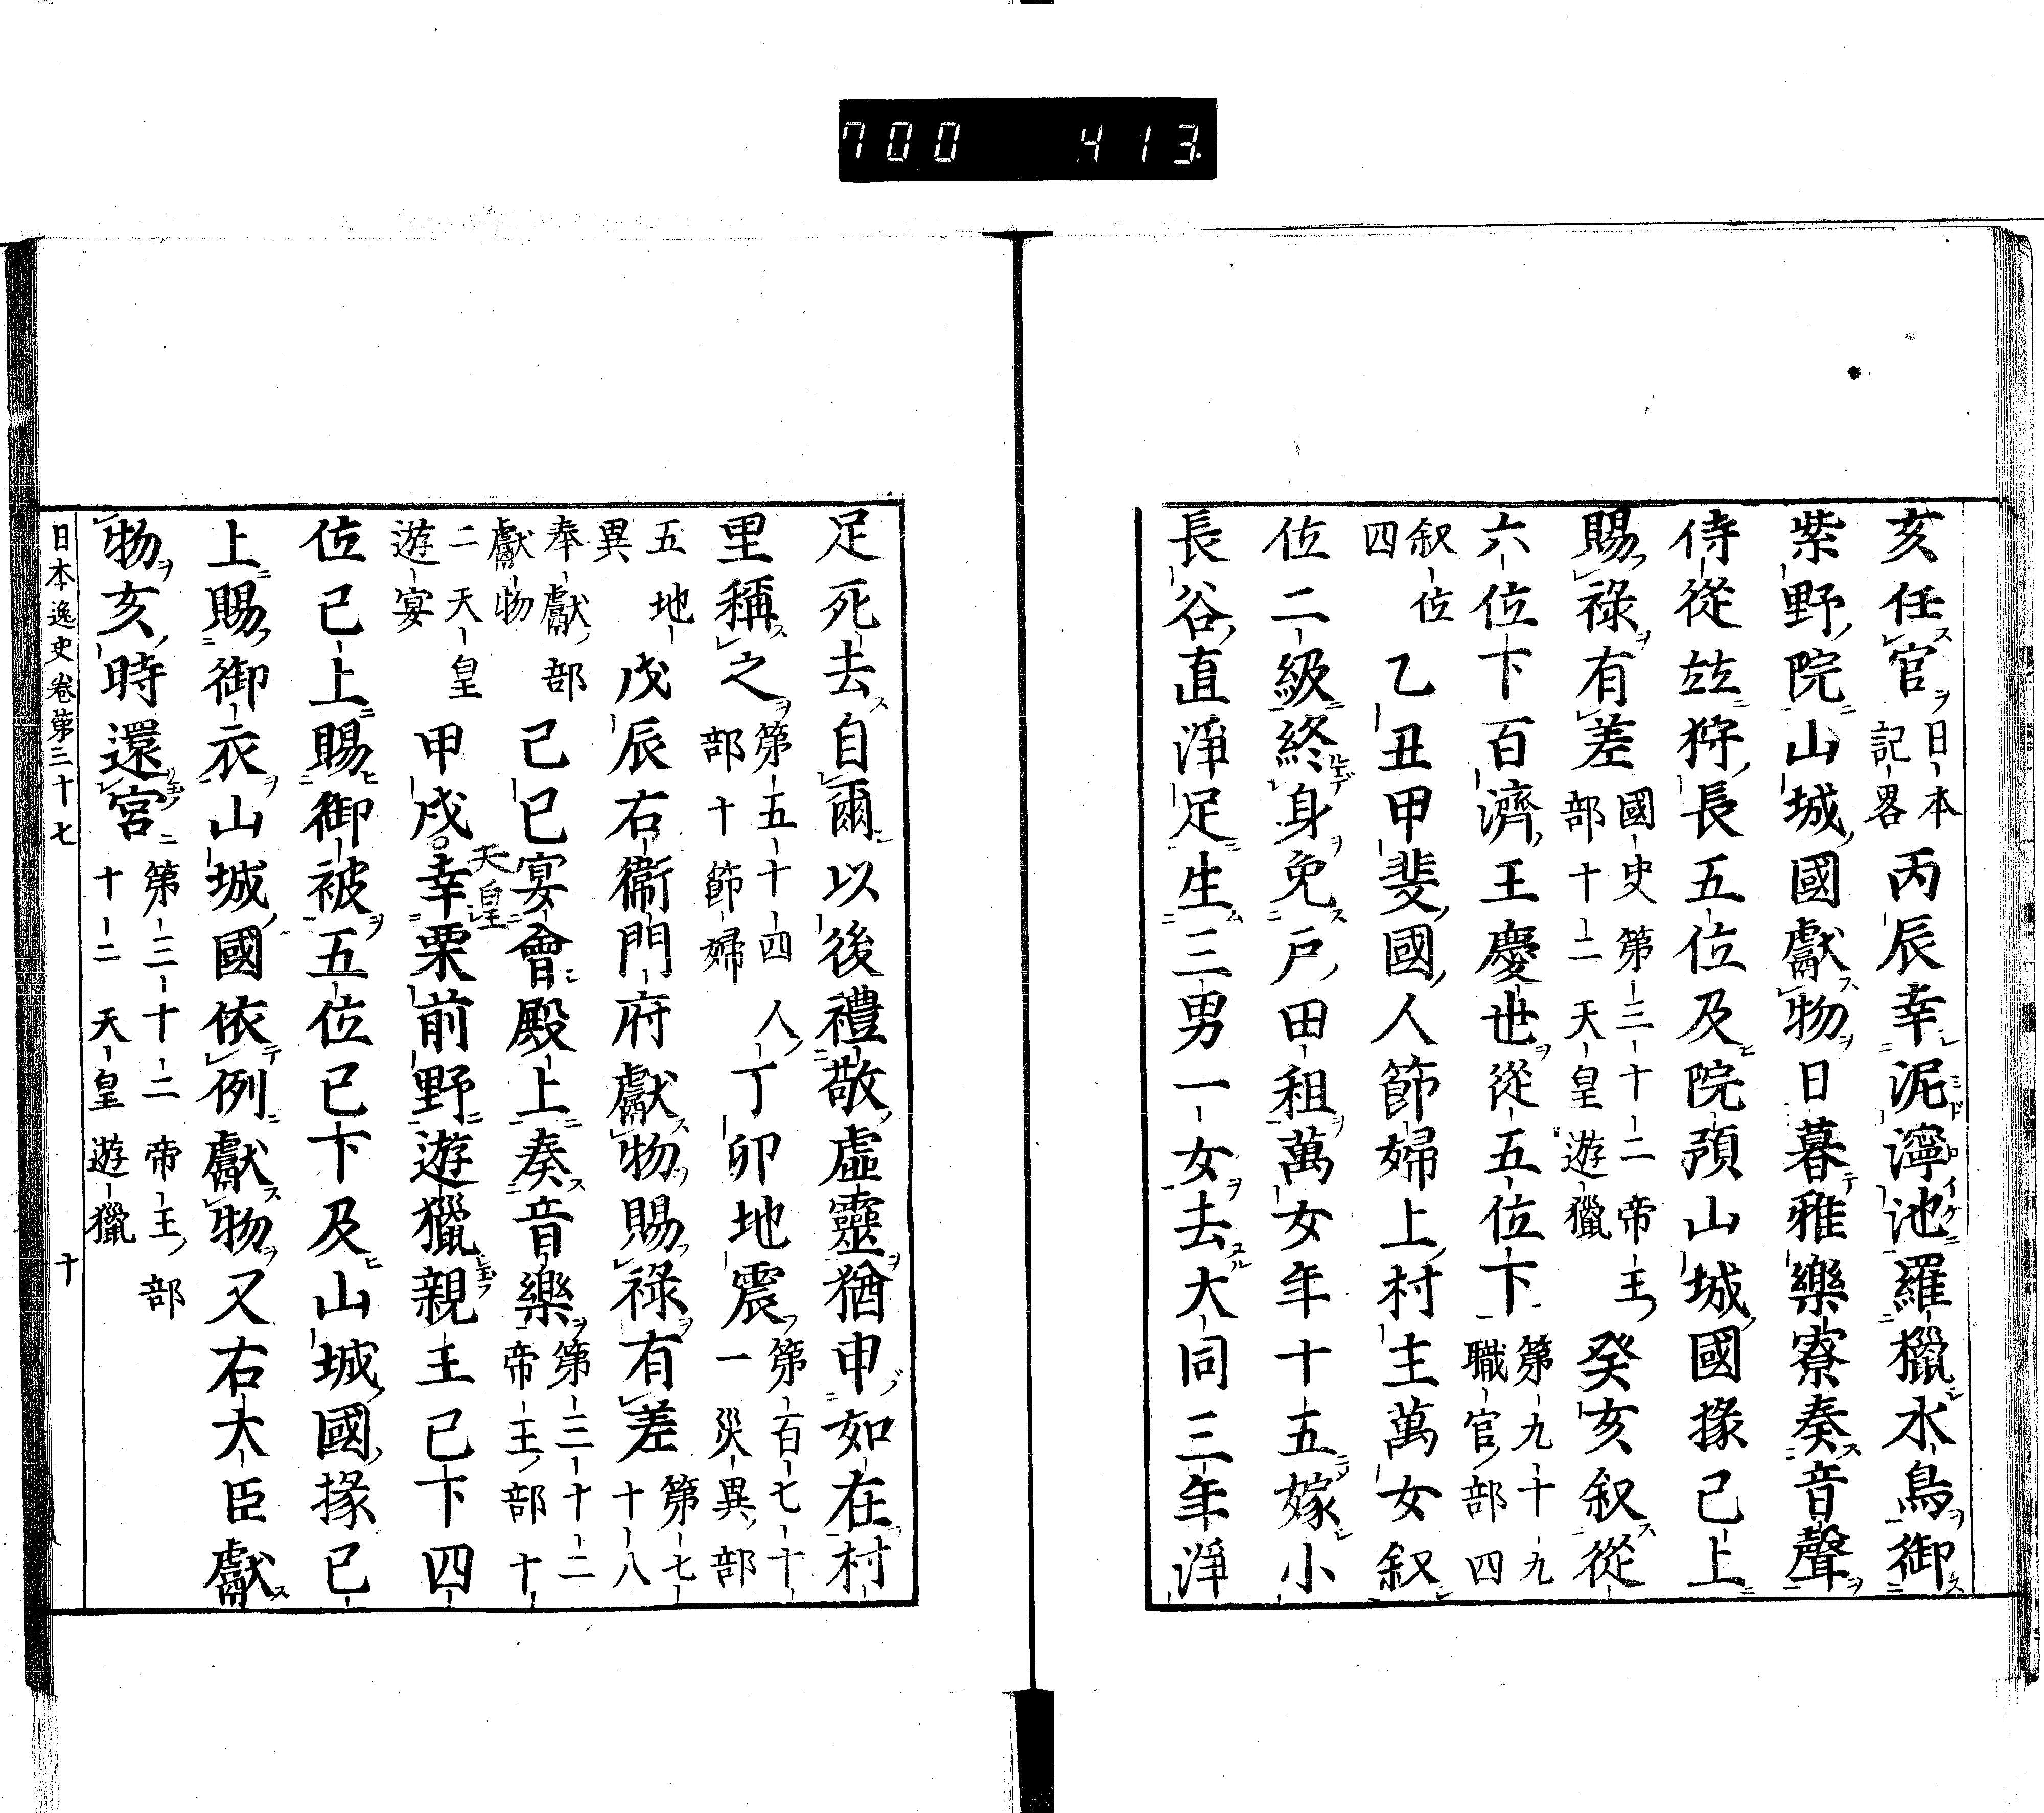 700 413
亥任官日本記畧丙辰幸泥濘池羅獵水鳥御
紫野院山城國獻物日暮雅樂寮奏音聲
侍從玆狩長五位及院預山城國掾已上
賜祿有差國史第三十二帝王部十二天皇遊獵癸亥叙從
六位下百濟王慶世從五位下第九十九職官部四
叙位四乙丑甲斐國人節婦上村主萬女叙
位二級終身免戶田租萬女年十五嫁小
長谷直淨足生三男一女去大同三年淨
足死去自爾以後禮敬虛靈猶申如在村
里稱之第五十四人部十節婦丁卯地震第百七十一災異部
五地異戊辰右衞門府獻物賜祿有差第七十八
奉獻部獻物己巳宴會殿上奏音樂第三十二帝王部十
二天皇遊宴甲戌天皇幸栗前野遊獵親王已下四
位已上賜御被五位已下及山城國掾已
上賜御衣山城國依例獻物又右大臣獻
物亥時還宮第三十二帝王部十二天皇遊獵
日本逸史卷第三十七 十